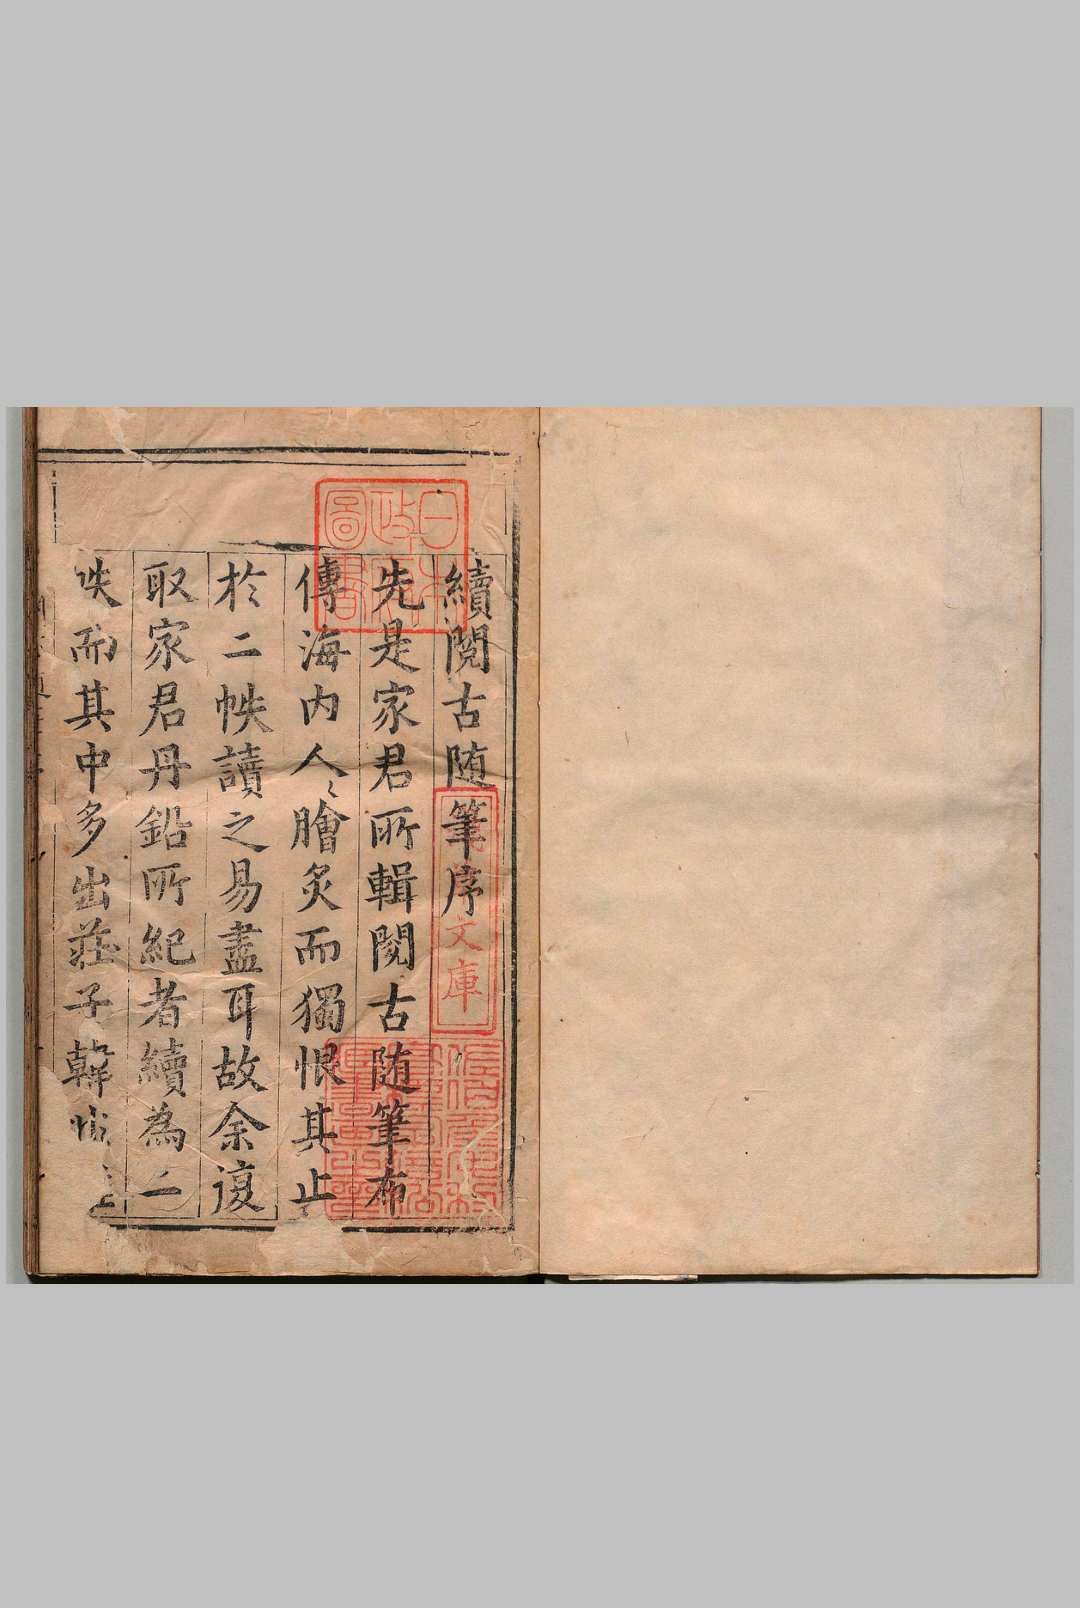 續閱古随筆序
先是家君所輯閱古随筆布
傳海内人〻膾炙而獨恨其止
於二帙讀之易盡耳故余復
取家君丹鉛所紀者續為二
帙而其中多出莊子韓
日本政府圖書
文庫